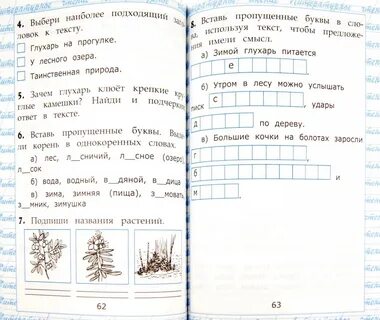 4. Выбери наиболее подходящий заго-
ловок к тексту.
Глухарь на прогулке.
У лесного озера.
Таинственная природа.
5. Зачем глухарь клюёт крепкие кру
глые камешки? Найди и подчерк
ответ в тексте.
6. Вставь пропущенные буквы. Выде
ли корень в однокоренных словах.
а) лес, л__сничий, л__сное (озеро),
л__сок
б) вода, водный, в__дяной, в__дица
в) зима, зимняя (пища), з__мовать,
з__мник, зимушка
7. Подпиши названия растений.
62
8. Вставь пропущенные буквы в сло-
ва, используя текст, чтобы предложе-
ния имели смысл.
а) Зимой глухарь питается
е
б) Утром в лесу можно услышать
писк с , удары
д по дереву.
в) Большие кочки на болотах заросли
г
б и
м
63